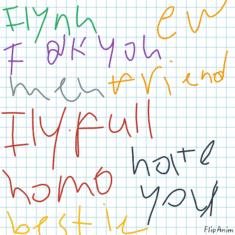 Flynn ew
F@#K you
men friend
Ily.full
homo hate
you
bestie
FlipAnim